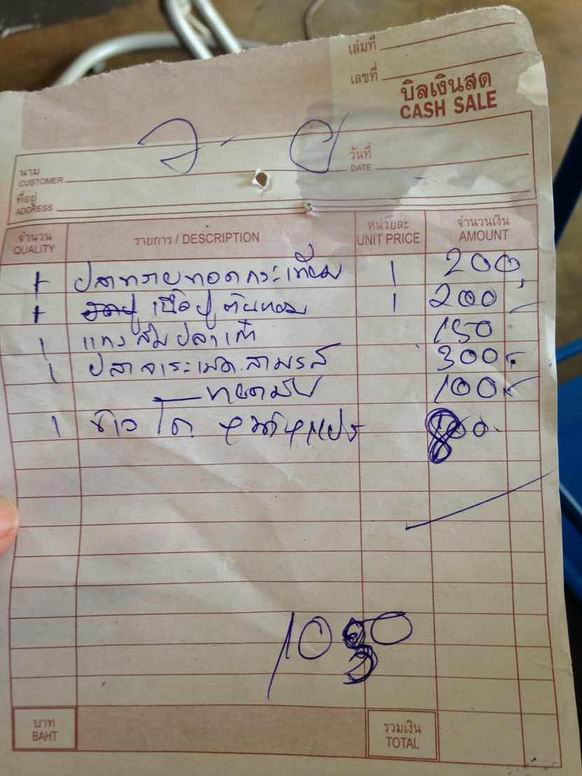 เล่มที่
เลขที่
บิลเงินสด
CASH SALE
นาม
CUSTOMER
วันที่
DATE
ที่อยู่
ADDRESS
จำนวน
QUALITY
รายการ / DESCRIPTION
หน่วยละ
UNIT PRICE
จำนวนเงิน
AMOUNT
1 ปลาทรายทอดกระเทียม 1 200
1 เนื้อปู 1 200
1 แกงส้มปลาเก๋า 150
1 ปลาจาระเม็ด สามรส 300
100
1 ข้าว โค้ก น้ำแข็ง
10 0
บาท
BAHT
รวมเงิน
TOTAL